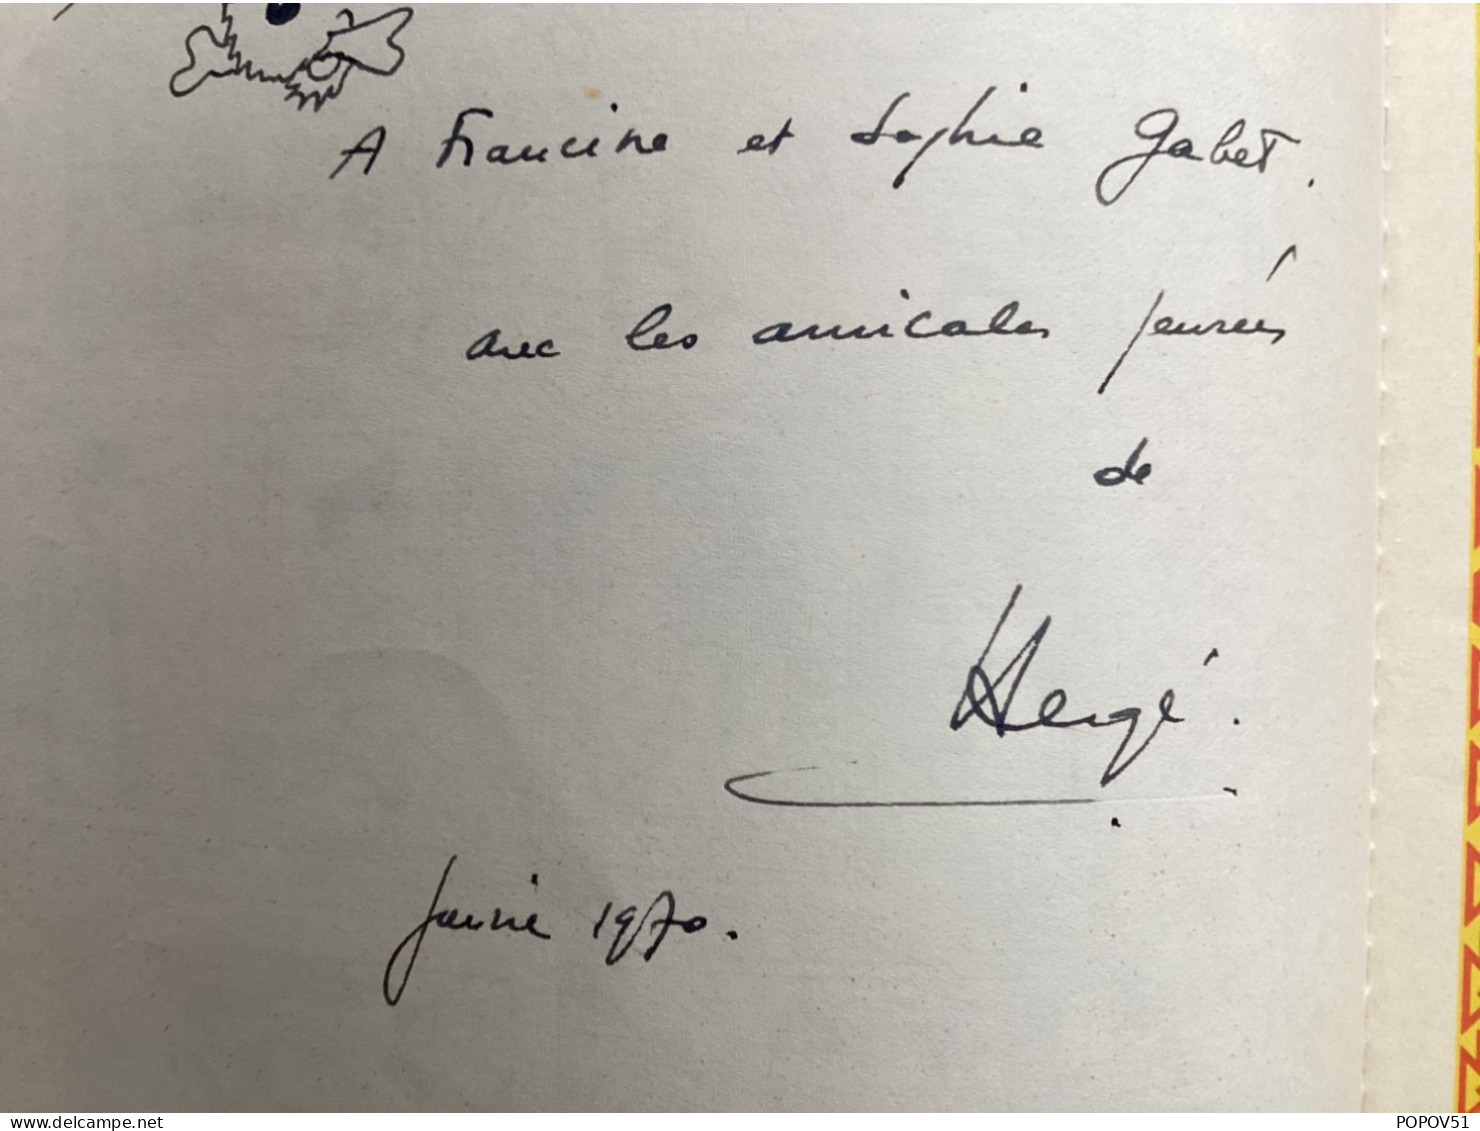 A Francine et Sophie Gabet.
avec les amicales pensées
de
Hergé.
Janvier 1970.
delcampe.net
POPOV51